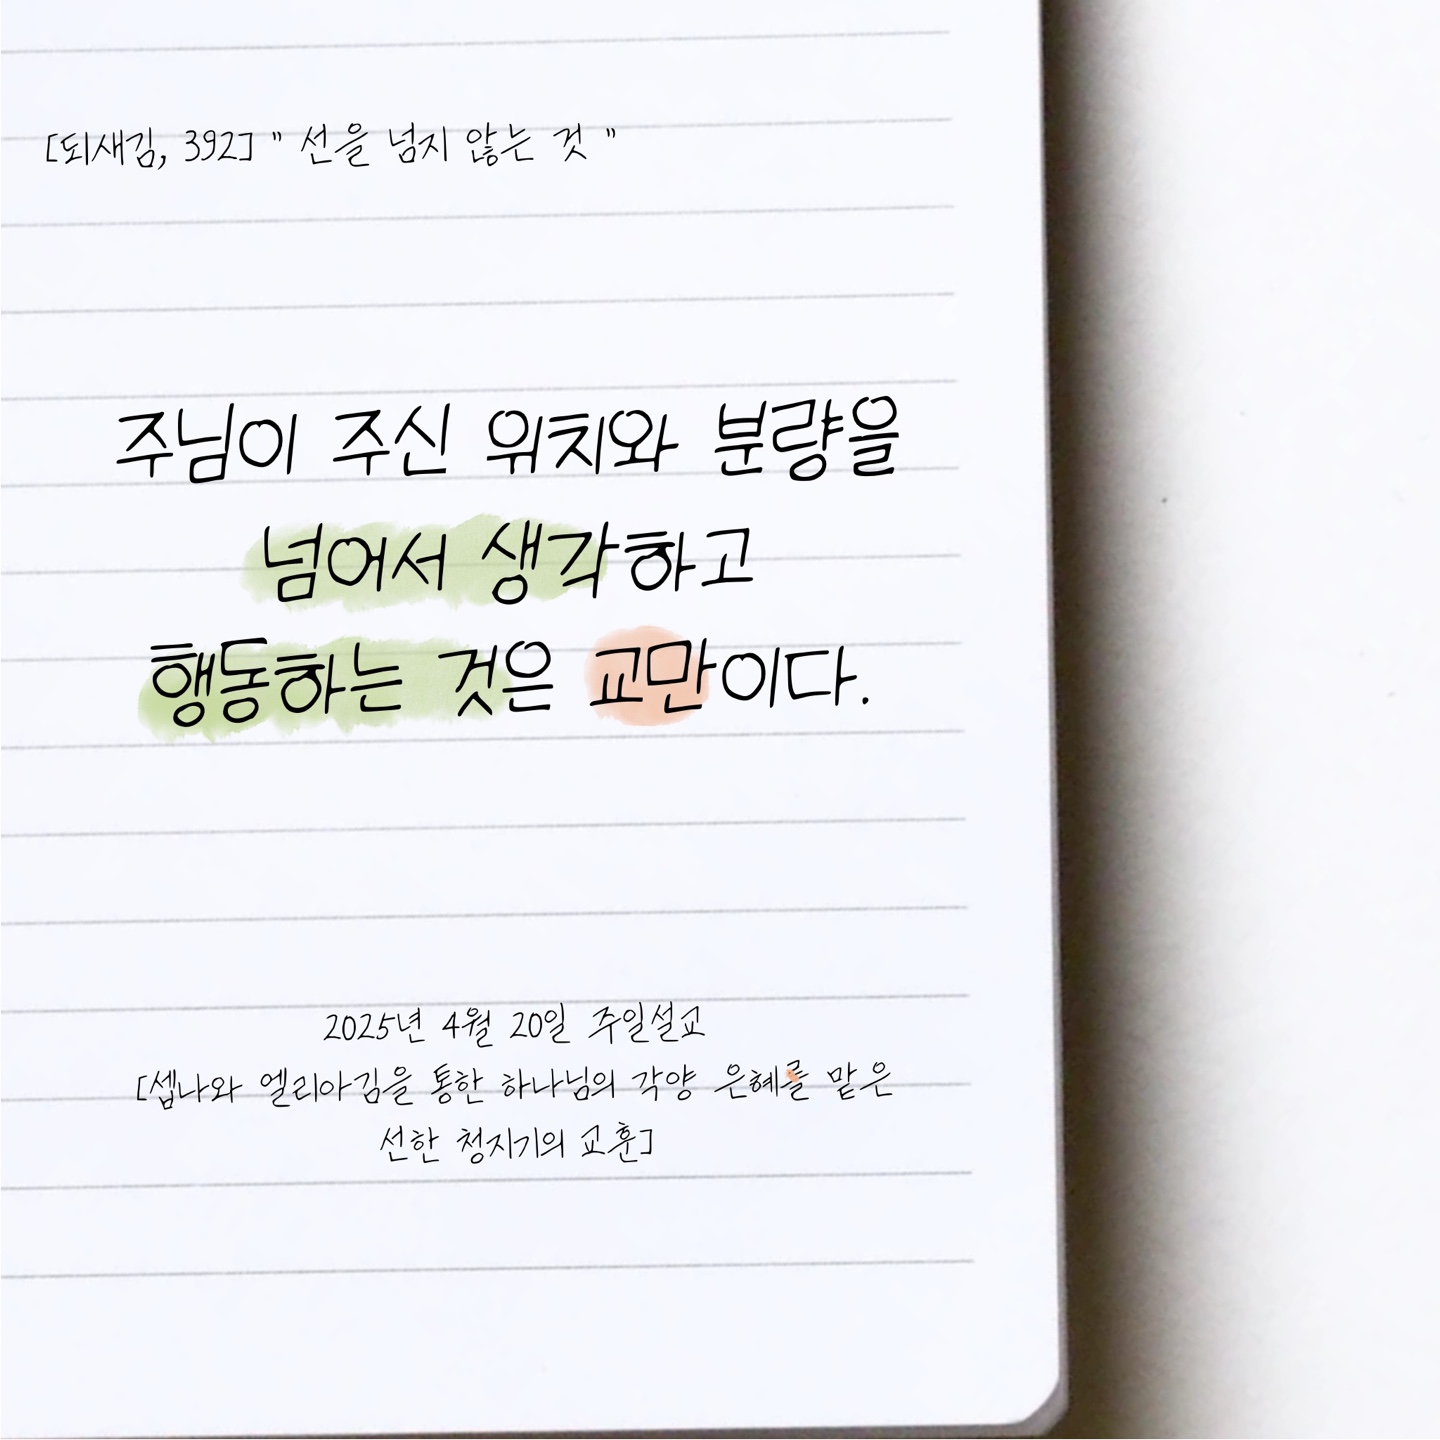 [되새김, 392] " 선을 넘지 않는 것 "
주님이 주신 위치와 분량을
넘어서 생각하고
행동하는 것은 교만이다.
2025년 4월 20일 주일설교
[셉나와 엘리아김을 통한 하나님의 각양 은혜를 맡은
선한 청지기의 교훈]